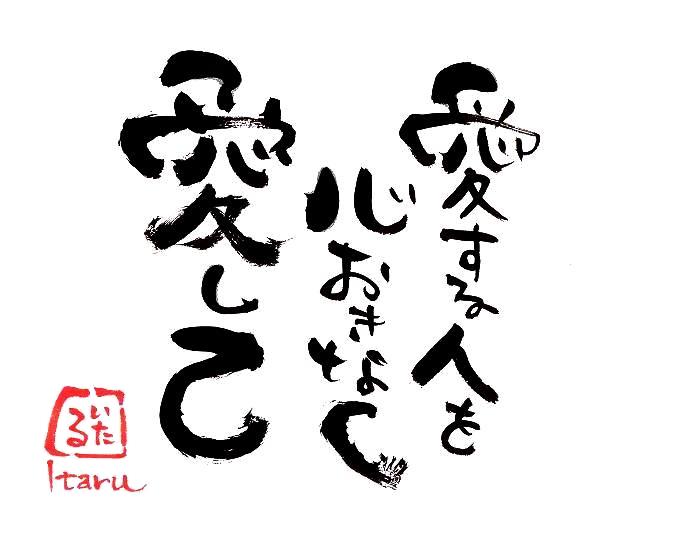 愛する人を
心おきなく
愛し己
いた
る
Itaru